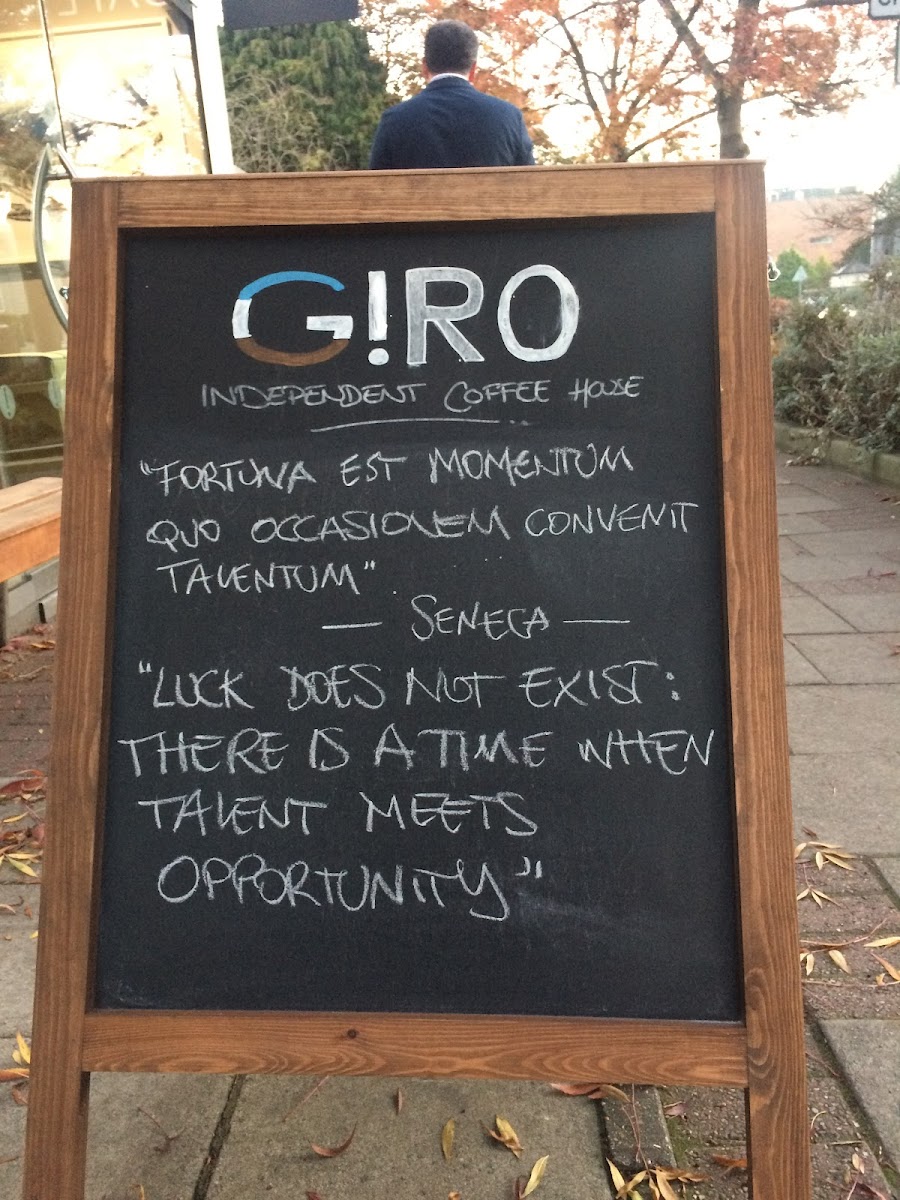 G!RO
INDEPENDENT COFFEE HOUSE
"FORTUNA EST MOMENTUM
QUO OCCASIONEM CONVENIT
TALENTUM"
— SENECA —
"LUCK DOES NOT EXIST:
THERE IS A TIME WHEN
TALENT MEETS
OPPORTUNITY"